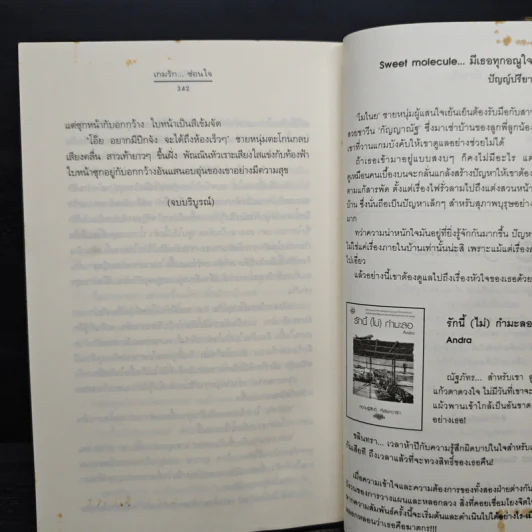 เกมรัก... ซ่อนใจ
342
แต่ซุกหน้ากับอกกว้าง ใบหน้าเป็นสีเข้มจัด
"โอ๊ย อยากมีปีกจัง จะได้ถึงห้องเร็วๆ" ชายหนุ่มตะโกนกลบ
เสียงคลื่น สาวเท้ายาวๆ ขึ้นฝั่ง พัณณินหัวเราะเสียงใสแข่งกับท้องฟ้า
ใบหน้าซุกอยู่กับอกกว้างอันแสนอบอุ่นของเขาอย่างมีความสุข
(จบบริบูรณ์)
Sweet molecule... มีเธอทุกอณูใจ
ปัญญ์ปรียา
ชายหนุ่มผู้แสนใจเย็นเย็นต้องรับมือกับสาว
'กัญญาณัฐ' ซึ่งมาเช่าบ้านของลูกพี่ลูกน้อง
เขาที่งานแกมบังคับให้เขาดูแลอย่างช่วยไม่ได้
ถ้าเธอเข้ามาอยู่แบบสงบๆ ก็คงไม่มีอะไร แต่
ดูเหมือนคนเบื้องบนจะกลั่นแกล้งสร้างปัญหาให้เขาต้อง
ตามแก้สารพัด ตั้งแต่เรื่องไฟรั่วลามไปถึงแต่งสวนหน้า
บ้าน ซึ่งนั่นถือเป็นปัญหาเล็กๆ สำหรับสุภาพบุรุษอย่าง
มาก
ทว่าความน่าหนักใจมันอยู่ที่ยิ่งรู้จักกันมากขึ้น ปัญหา
ไม่ใช่แค่เรื่องภายในบ้านเท่านั้นน่ะสิ เพราะแม้แต่เรื่อง
แล้วอย่างนี้เขาต้องดูแลไปถึงเรื่องหัวใจของเธอด้วย
รักนี้ (ไม่) กำมะลอ
Andra
รักนี้ (ไม่) กำมะลอ
Andra
ณัฐภัทร... สำหรับเขา
แก้วตาดวงใจ ไม่มีวันที่เขาจะ
แผ้วพานเข้าใกล้เป็นอันขาด
อย่างเธอ!
ชลินทรา... เวลาห้าปีกับความรู้สึกผิดบาปในใจสำหรับ
ถึงเวลาแล้วที่จะทวงสิทธิ์ของเธอคืน!
เมื่อความเข้าใจและความต้องการของทั้งสองฝ่ายต่างกัน
ของการวางแผนและหลอกลวง สิ่งที่คอยเชื่อมโยงจิตใจ
ความสัมพันธ์ครั้งนี้จะเริ่มต้นและดำเนินไปได้อย่างไร
หลอกหลอนว่าเธอคือฆาตกร!!!